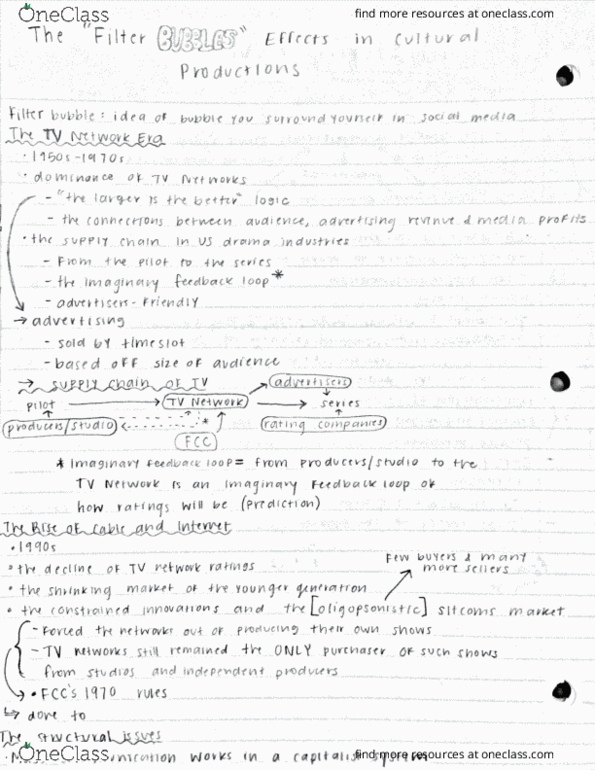 OneClass
find more resources at oneclass.com
The "Filter BUBBLES" Effects in Cultural
Productions
Filter bubble: idea of bubble you surround yourself in social media
The TV Network Era
• 1950s-1970s
• dominance of TV Networks
- "the larger is the better" logic
- the connections between audience, advertising revenue & media profits
• the supply chain in US drama industries
- From the pilot to the series
- the imaginary feedback loop *
- advertisers-friendly
→ advertising
- sold by timeslot
- based off size of audience
→ supply chain of TV
advertisers
pilot → TV Network → series
producers/studio * rating companies
FCC
* Imaginary feedback loop = from producers/studio to the
TV Network is an imaginary feedback loop of
how ratings will be (prediction)
The Rise of Cable and Internet
• 1990s
• the decline of TV network ratings
Few buyers & many
more sellers
• the shrinking market of the younger generation
• the constrained innovations and the [oligopsonistic] sitcoms market
- Forced the networks out of producing their own shows
- TV networks still remained the ONLY purchaser of such shows
from studios and independent producers
• FCC's 1970 rules
↳ done to
The structural issues
works in a capitalist system
OneClass
find more resources at oneclass.com